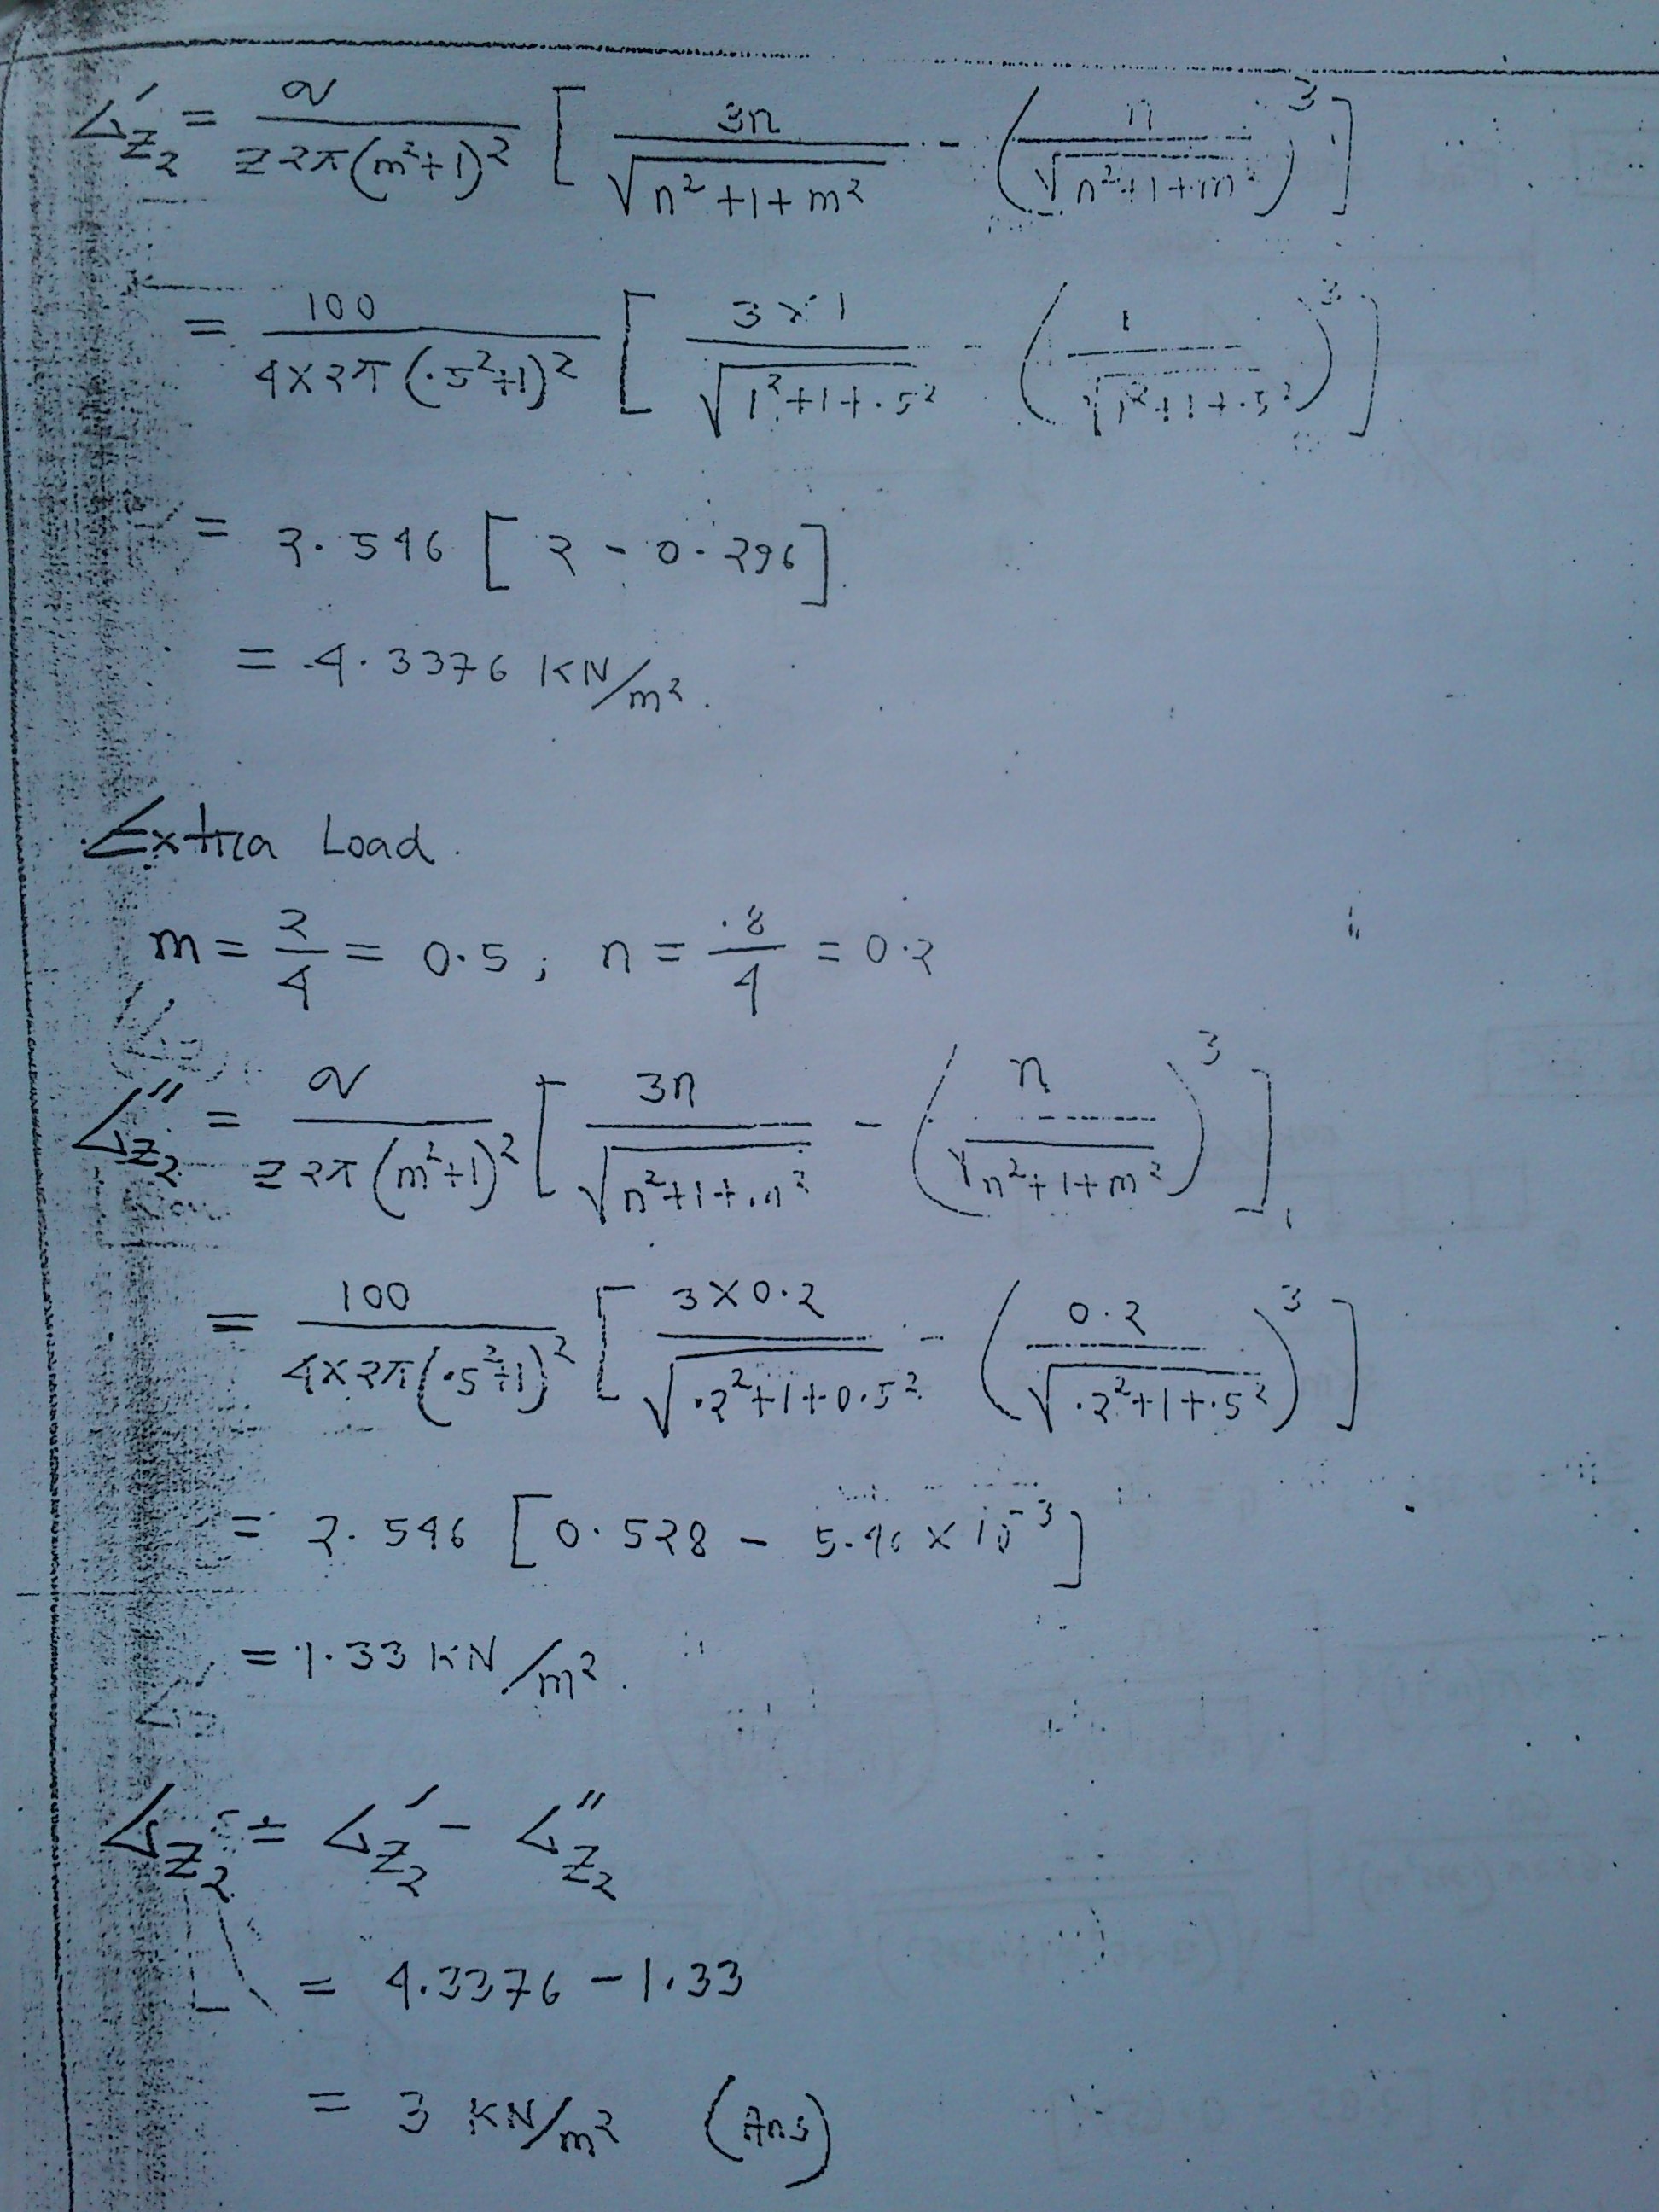 σ'z₂ = q / z 2π(m²+1)² [ 3n / √(n²+1+m²) - ( n / √(n²+1+m²) )³ ]
= 100 / 4×2π(.5²+1)² [ 3×1 / √(1²+1+.5²) - ( 1 / √(1²+1+.5²) )³ ]
= 2.546 [ 2 - 0.296 ]
= 4.3376 KN/m².
Extra Load.
m = 2/4 = 0.5; n = .8/4 = 0.2
σ''z₂ = q / z 2π(m²+1)² [ 3n / √(n²+1+m²) - ( n / √(n²+1+m²) )³ ]
= 100 / 4×2π(.5²+1)² [ 3×0.2 / √(.2²+1+0.5²) - ( 0.2 / √(.2²+1+.5²) )³ ]
= 2.546 [ 0.528 - 5.46×10⁻³ ]
= 1.33 KN/m².
σz₂ = σ'z₂ - σ''z₂
= 4.3376 - 1.33
= 3 KN/m² (Ans)